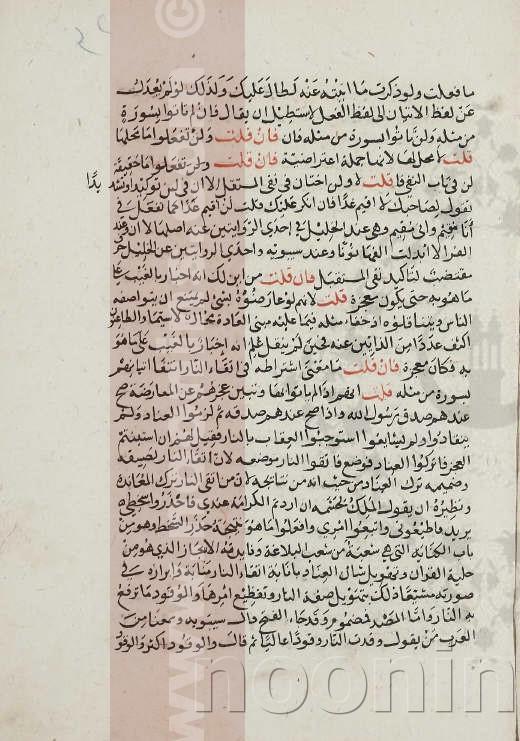 ما فعلت ولو ذكرت ما انبته عنه لطال عليك وكذلك لو لم يعدل
عن لفظ الاتيان الى لفظ الفعل لاستطيل ان يقال فان لم تاتوا بسورة
من مثله ولن تاتوا بسورة من مثله فان قلت ولن تفعلوا ما محلها
قلت لا محل لها لانها جملة اعتراضية فان قلت ولن تفعلوا ما حقيقة
لن في باب النفي قلت لا ولن اختان في نفي المستقبل الا ان في لن توكيدا وتشديدا
تقول لصاحبك لا اقيم غدا فان انكر عليك قلت لن اقيم غدا كما تفعل في
انا مقيم واني مقيم وهي عند الخليل في احدى الروايتين عنه اصلها لا ان وعند
الفرا لا ابدلت الفها نونا وعند سيبويه واحدى الروايتين عن الخليل حرف
مقتضب لتاكيد نفي المستقبل فان قلت من اين لك انه اخبار بالغيب على
ما هو به حتى يكون معجزة قلت لانهم لو عارضوه بشئ لم يمتنع ان يتواصفه
الناس ويتناقلوه اذ خفاء مثله فيما عليه مبنى العادة محال لا سيما والطاعنون
اكثف عددا من الذابين عنه فحين لم ينقل علم انه اخبار بالغيب على ما هو
به فكان معجزة فان قلت ما معنى اشتراطه في اتقاء النار انتفاء اتيانهم
بسورة من مثله قلت انهم اذا لم ياتوا بها وتبين عجزهم عن المعارضة صح
عندهم صدق رسول الله واذا صح عندهم صدقه ثم لزموا العناد ولم
ينقادوا ولم يشايعوا استوجبوا العقاب بالنار فقيل لهم ان استبنتم
العجز فاتركوا العناد فوضع فاتقوا النار موضعه لان اتقا النار لصيقه
وضميمه ترك العناد من حيث انه من نتائجه لان من اتقى النار ترك المعاندة
ونظيره ان يقول الملك لحشمه ان اردتم الكرامة عندي فاحذروا سخطي
يريد فاطيعوني واتبعوا امري وافعلوا ما هو نتيجة حذر السخط وهو من
باب الكناية التي هي شعبة من شعب البلاغة وفايدته الايجاز الذي هو من
حلية القران وتهويل شان العناد بانابة اتقاء النار منابه وابرازه في
صورته مشيعا ذلك بتهويل صفة النار وتفظيع امرها والوقود ما ترفع
به النار واما المصدر فمضموم وقد جاء الفتح قال سيبويه وسمعنا من
العرب من يقول وقدت النار وقودا عاليا ثم قال والوقود اكثر والوقود